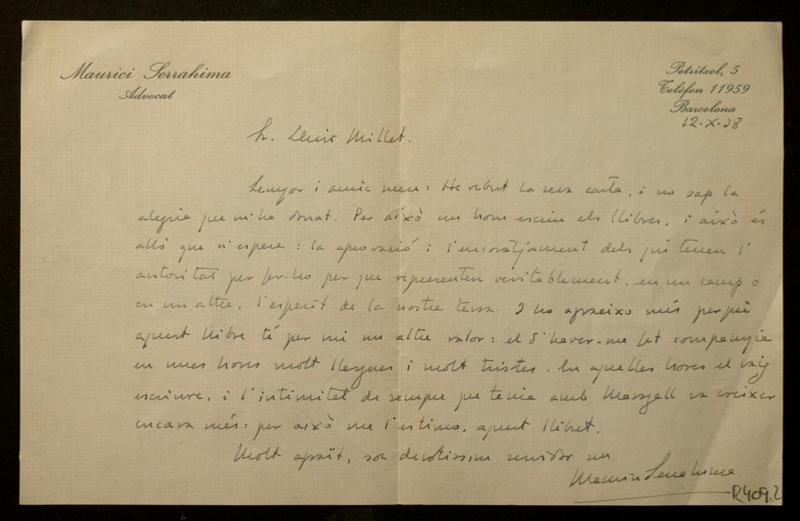 Maurici Serrahima
Advocat
Petritxol, 5
Telèfon 11959
Barcelona
12-X-38
Sr. Lluis Millet.
Senyor i amic meu: He rebut la seva carta, i no sap la
alegria que m'ha donat. Per això un hom escriu els llibres, i això és
allò que n'espera: la aprovació i l'encoratjament dels qui tenen l'
autoritat per fer-ho per que representen veritablement, en un camp o
en un altre, l'esperit de la nostra terra. I ho agraeixo més perquè
aquest llibre té per mi un altre valor: el d'haver-me fet companyia
en unes hores molt llargues i molt tristes. En aquelles hores el vaig
escriure, i l'intimitat de sempre que tenia amb Maragall va créixer
encara més: per això me l'estimo, aquest llibret.
Molt agraït, soc devotissim servidor seu
Maurici Serrahima
R409.2